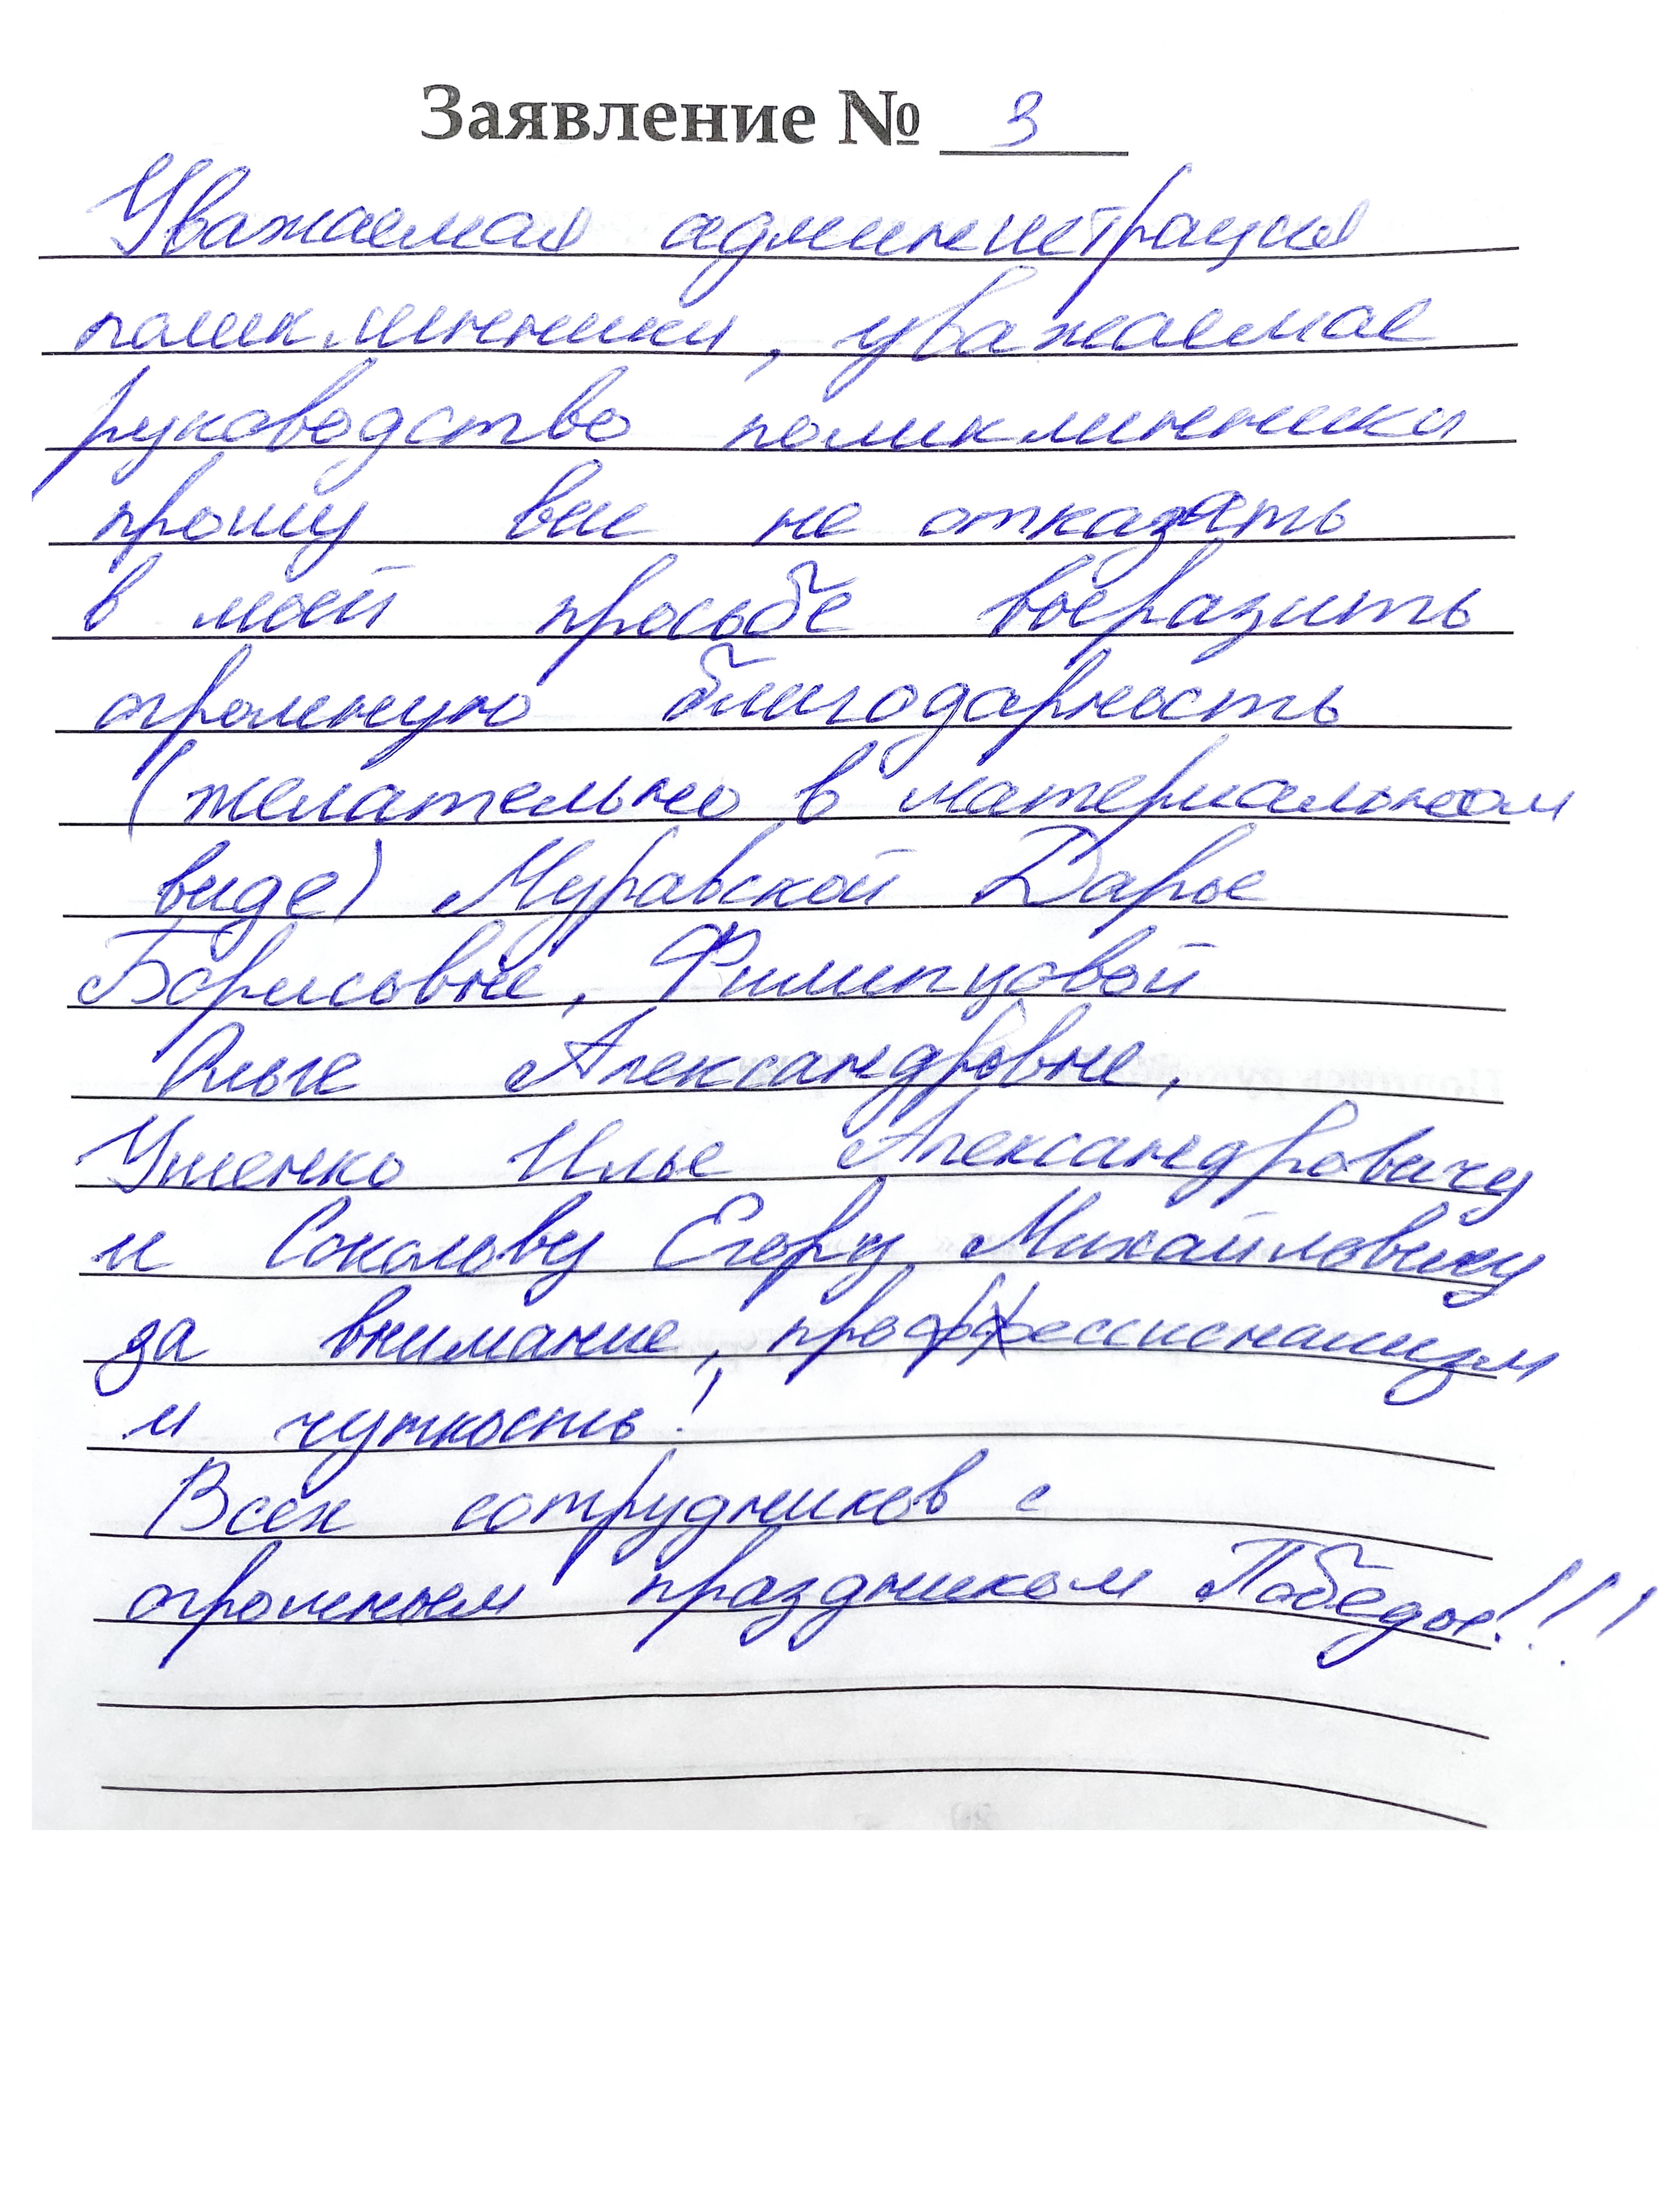 Заявление № 3
Уважаемая администрация
поликлинники, уважаемое
руководство поликлинники
прошу вас не отказать
в моей просьбе выразить
огромную благодарность
(желательно в материальном
виде) Муравской Дарье
Борисовне, Филипцовой
Ольге Александровне,
Ященко Илье Александровичу
и Соколову Егору Михайловичу
за внимание, профессионализм
и чуткость!
Всех сотрудников с
огромным праздником Победы!!!